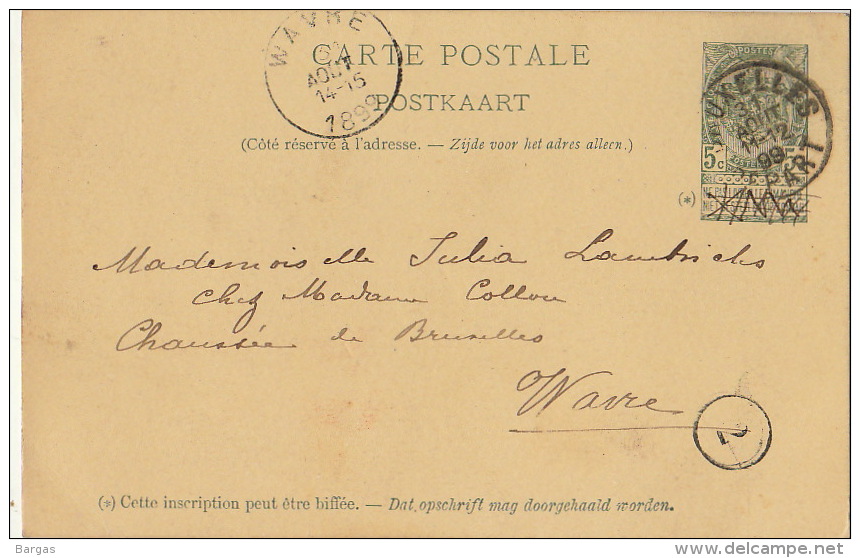 WAVRE
AOUT
14-15
1899
CARTE POSTALE
POSTKAART
(Côté réservé à l'adresse. — Zijde voor het adres alleen.)
POSTES
BRUXELLES
AOUT
11-12
99
DEPART
5 c 5
(*)
Mademoiselle Julia Lambrichs
chez Madame Collon
Chaussée de Bruxelles
Wavre
2
(*) Cette inscription peut être biffée. — Dat opschrift mag doorgehaald worden.
Bargas
www.delcampe.net